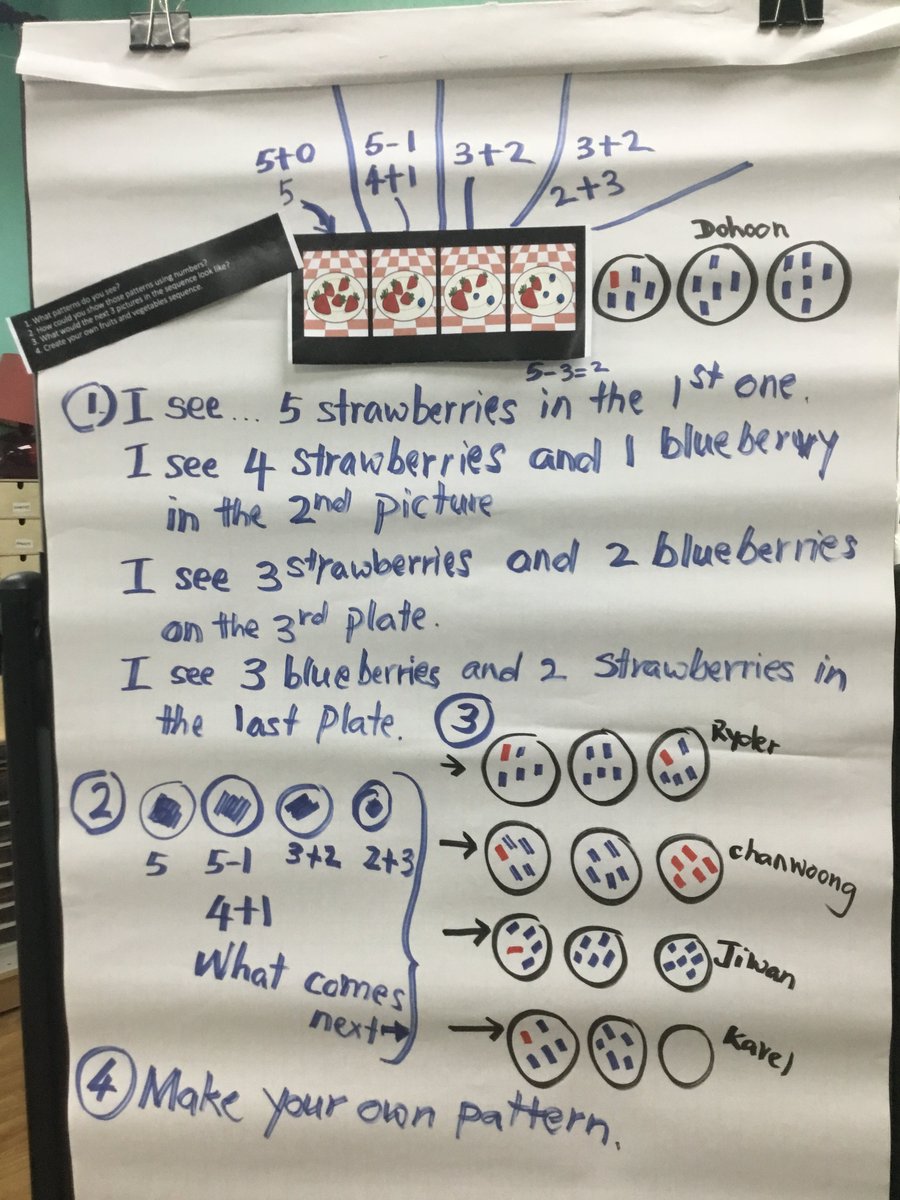 5+0
5
5-1
4+1
3+2
3+2
2+3
Dohoon
1. What patterns do you see?
2. How could you show those patterns using numbers?
3. What would the next 3 pictures in the sequence look like?
4. Create your own fruits and vegetables sequence.
5-3=2
1. I see... 5 strawberries in the 1st one.
I see 4 strawberries and 1 blueberry
in the 2nd picture
I see 3 strawberries and 2 blueberries
on the 3rd plate.
I see 3 blueberries and 2 strawberries in
the last plate.
2
5 5-1 3+2 2+3
4+1
What comes
next→
3
Ryder
chanwoong
Jiwan
Karel
4 Make your own pattern.